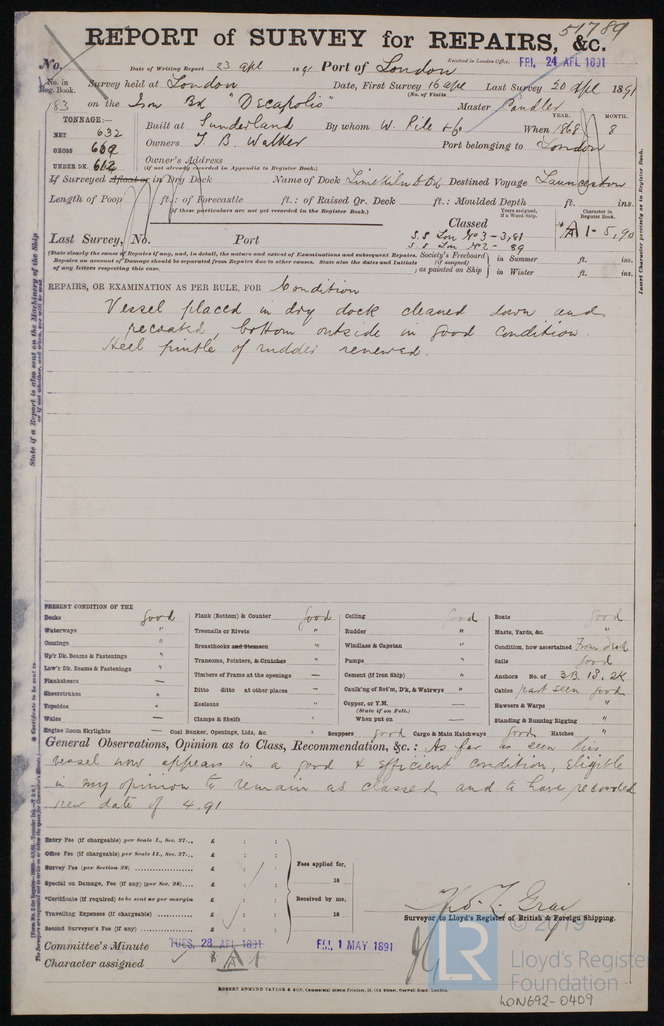 51789
REPORT of SURVEY for REPAIRS, &c.
No. Date of Writing Report 23 apl 1891 Port of London Received in London Office, FRI. 24 APL 1891
No. in Reg. Book. Survey held at London Date, First Survey 16 apl Last Survey 20 apl 1891
(No. of Visits
183 on the Iron Bk "Decapolis" Master
TONNAGE:— YEAR. MONTH.
NET 632 Built at Sunderland By whom W. Pile & Co When 1868 8
GROSS 669 Owners T. B. Walker Port belonging to London
UNDER DK. 612 Owner's Address
(if not already recorded in Appendix to Register Book.)
If Surveyed Afloat or in Dry Dock Name of Dock Limekiln D Dk Destined Voyage Launceston
Length of Poop ft.: of Forecastle ft.: of Raised Qr. Deck ft.: Moulded Depth ft. ins.
(if these particulars are not yet recorded in the Register Book.)
Classed Years assigned, if a Wood Ship. Character in Register Book.
Last Survey, No. Port S.S Lon No 3 - 3,81 A 1 - 5,90
S.S Lon No 2 - 89
(State clearly the cause of Repairs if any, and, in detail, the nature and extent of Examinations and subsequent Repairs.
Repairs on account of Damage should be separated from Repairs due to other causes. State also the dates and Initials
of any letters respecting this case.
Society's Freeboard (if assigned) as painted on Ship in Summer ft. ins.
in Winter ft. ins.
REPAIRS, OR EXAMINATION AS PER RULE, FOR Condition
Vessel placed in dry dock cleaned down and
recoated, bottom outside in good condition.
Heel pintle of rudder renewed.
PRESENT CONDITION OF THE
Decks good Plank (Bottom) & Counter good Ceiling good Boats good
Waterways " Treenails or Rivets " Rudder " Masts, Yards, &c. "
Comings " Breasthooks and Stemson " Windlass & Capstan " Condition, how ascertained From deck
Up'r Dk. Beams & Fastenings " Transoms, Pointers, & Crutches " Pumps " Sails good
Low'r Dk. Beams & Fastenings " Timbers of Frame at the openings — Cement (if Iron Ship) " Anchors No. of 3B. 1S. 2K
Planksheers — Ditto ditto at other places — Caulk'ng of Bot'm, D'k, & Watrwys " Cables part seen good
Sheerstrakes " Keelsons " Copper, or Y.M. — Hawsers & Warps "
Topsides " Clamps & Shelfs " (State if on Felt.) Standing & Running Rigging "
Wales — When put on —
Engine Room Skylights — Coal Bunker, Openings, Lids, &c. " Scuppers good Cargo & Main Hatchways good Hatches "
General Observations, Opinion as to Class, Recommendation, &c.: As far as seen this
vessel now appears in a good & efficient condition, eligible
in my opinion to remain as classed and to have recorded
new date of 4.91
Entry Fee (if chargeable) per Scale I., Sec. 27 £ : :
Office Fee (if chargeable) per Scale II., Sec. 27 £ : : Fees applied for,
Survey Fee (per Section 28) £ : : 18
Special on Damage, Fee (if any) (per Sec. 28) £ : :
*Certificate (if required) to be sent as per margin £ : : Received by me,
Travelling Expenses (if chargeable) £ : : 18
Second Surveyor's Fee (if any) £ : :
Surveyor to Lloyd's Register of British & Foreign Shipping.
Committee's Minute TUES. 28 APL 1891 FRI. 1 MAY 1891
Character assigned A 1
ROBERT EDMUND TAYLOR & SON,
© 2019
LR
Lloyd's Register
Foundation
LON692-0409
Insert Character precisely as in Register Book.
State if a Report is also sent on the Machinery of the Ship